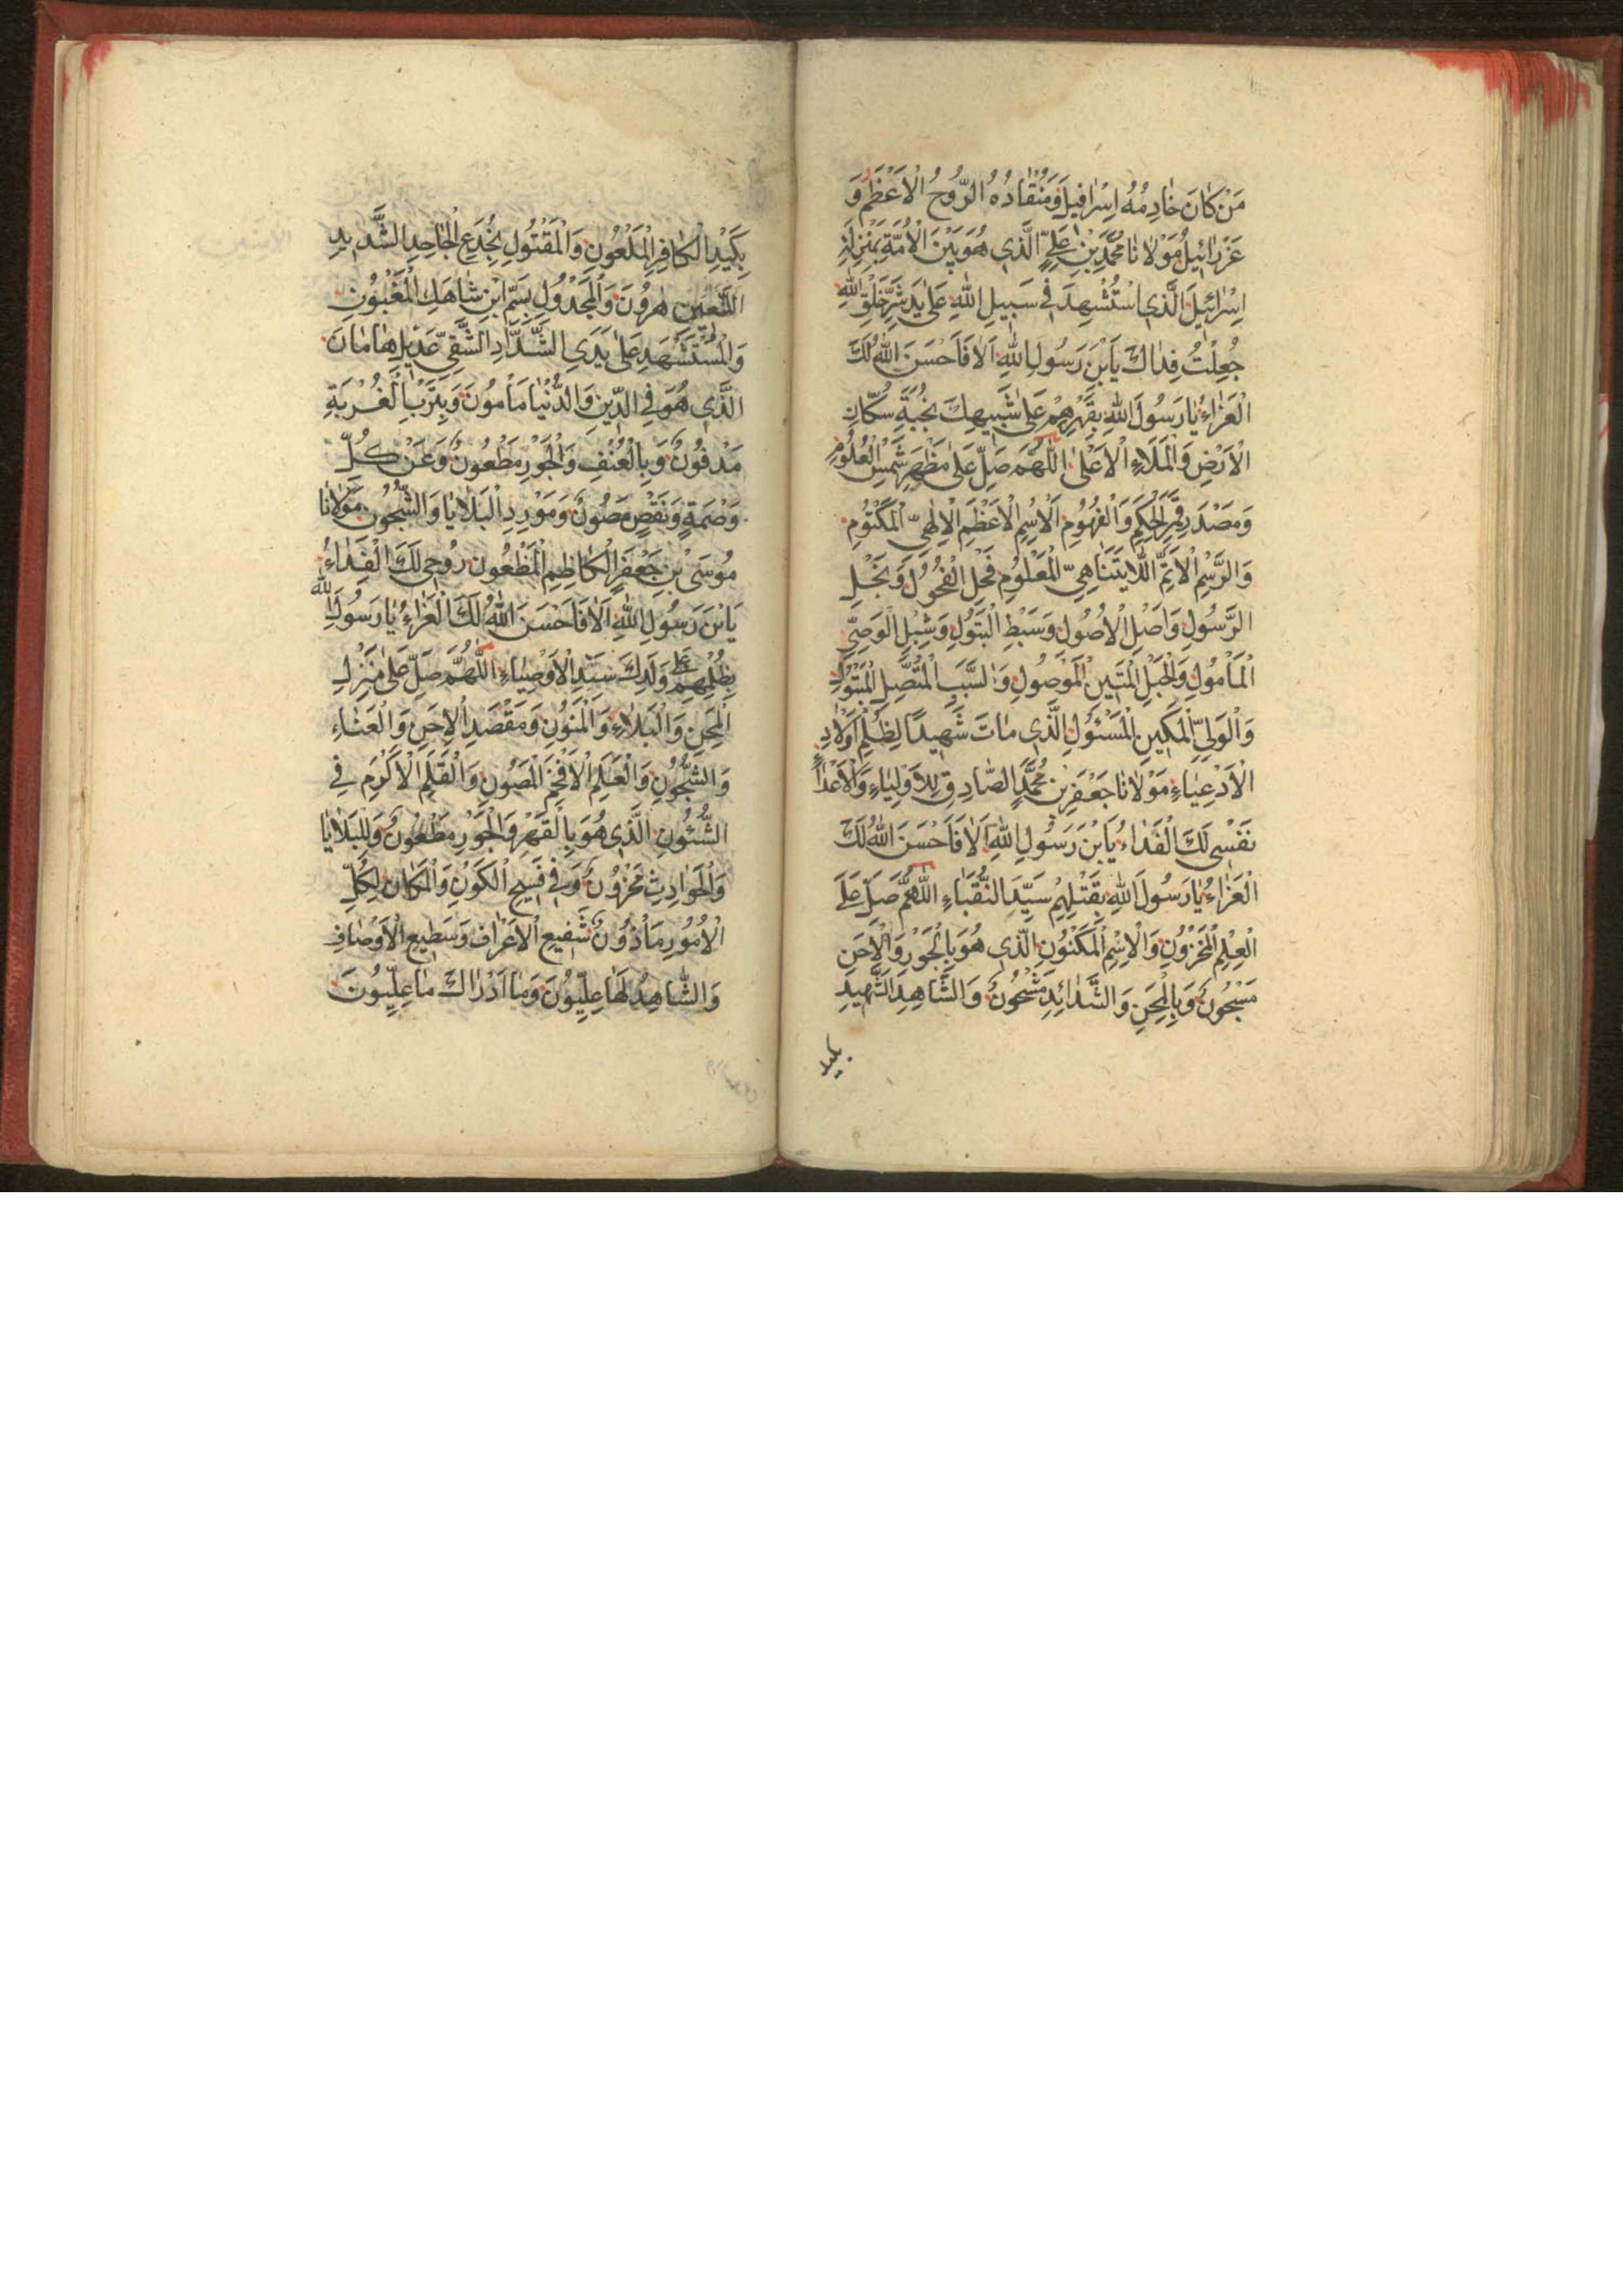 مَنْ كَانَ خَادِمُهُ اِسْرَافِيلَ وَمُنْقَادُهُ الرُّوحُ الْاَعْظَمُ وَ
عَزْرَائِيلُ مَوْلَانَا مُحَمَّدِ بْنِ عَلِيٍّ الَّذِي هُوَ بَيْنَ الْاُمَّةِ بِمَنْزِلَةِ
اِسْرَائِيلَ الَّذِي اسْتُشْهِدَ فِي سَبِيلِ اللهِ عَلَى يَدِ شَرِّ خَلْقِ اللهِ
جُعِلْتُ فِدَاكَ يَابْنَ رَسُولِ اللهِ اَلَا فَاَحْسَنَ اللهُ لَكَ
الْعَزَاءَ يَا رَسُولَ اللهِ بِقَهْرِهِمْ عَلَى شَبِيهِكَ نُخْبَةِ سُكَّانِ
الْاَرْضِ وَالْمَلَاءِ الْاَعْلَى اللّٰهُمَّ صَلِّ عَلَى مَظْهَرِ شَمْسِ الْعُلُومِ
وَمَصْدَرِ قَمَرِ الْحِكَمِ وَالْفُهُومِ الْاِسْمِ الْاَعْظَمِ الْاِلٰهِيِّ الْمَكْتُومِ
وَالرَّسْمِ الْاَتَمِّ اللَّايَتَنَاهِيِّ الْمَعْلُومِ فَحْلِ الْفُحُولِ وَنَجْلِ
الرَّسُولِ وَاَصْلِ الْاُصُولِ وَسَبْطِ الْبَتُولِ وَشِبْلِ الْوَصِيِّ
الْمَأْمُولِ وَالْحَبْلِ الْمَتِينِ الْمَوْصُولِ وَالسَّبَبِ الْمُتَّصِلِ الْمَبْتُولِ
وَالْوَلِيِّ الْمَكِينِ الْمَسْئُولِ الَّذِي مَاتَ شَهِيدًا لِظُلْمِ اَوْلَادِ
الْاَدْعِيَاءِ مَوْلَانَا جَعْفَرِ بْنِ مُحَمَّدٍ الصَّادِقِ لِلْاَوْلِيَاءِ وَالْاَعْدَاءِ
نَفْسِي لَكَ الْفَدَاءُ يَابْنَ رَسُولِ اللهِ اَلَا فَاَحْسَنَ اللهُ لَكَ
الْعَزَاءَ يَا رَسُولَ اللهِ بِقَتْلِهِمْ سَيِّدَ النُّقَبَاءِ اللّٰهُمَّ صَلِّ عَلَى
الْعِلْمِ الْمَخْزُونِ وَالْاِسْمِ الْمَكْنُونِ الَّذِي هُوَ بِالْجَوْرِ وَالْاِحَنِ
مَسْجُونٌ وَبِالْمِحَنِ وَالشَّدَائِدِ مَشْحُونٌ وَالشَّاهِدِ الشَّهِيدِ
بكيد
بِكَيْدِ الْكَافِرِ الْمَلْعُونِ وَالْمَقْتُولِ بِخُدَعِ الْجَاحِدِ الشَّدِيدِ
اللَّعِينِ هٰرُونَ وَالْمَجْدُولِ بِسَمِّ ابْنِ شَاهَكِ الْمَغْبُونِ
وَالْمُسْتَشْهَدِ عَلَى يَدَيِ الشَّدَّادِ الشَّقِيِّ عَدِيلِ هَامَانَ
الَّذِي هُوَ فِي الدِّينِ وَالدُّنْيَا مَأْمُونٌ وَبِتَرْبِ الْغُرْبَةِ
مَدْفُونٌ وَبِالْعُنْفِ وَالْجَوْرِ مَطْعُونٌ وَعَنْ كُلِّ
وَصْمَةٍ وَنَقْصٍ مَصُونٌ وَمَوْرِدِ الْبَلَايَا وَالشُّجُونِ مَوْلَانَا
مُوسَى بْنِ جَعْفَرٍ الْكَاظِمِ الْمَظْعُونِ رُوحِي لَكَ الْفَدَاءُ
يَابْنَ رَسُولِ اللهِ اَلَا فَاَحْسَنَ اللهُ لَكَ الْعَزَاءَ يَا رَسُولَ اللهِ
بِظُلْمِهِمْ عَلَى وَلَدِكَ سَيِّدِ الْاَوْصِيَاءِ اللّٰهُمَّ صَلِّ عَلَى مَنْزِلِ
الْمِحَنِ وَالْبَلَاءِ وَالْمَنُونِ وَمَقْصَدِ الْاِحَنِ وَالْعَنَاءِ
وَالشُّجُونِ وَالْعَلَمِ الْاَفْخَمِ الْمَصُونِ وَالْقَلَمِ الْاَكْرَمِ فِي
الشُّئُونِ الَّذِي هُوَ بِالْقَهْرِ وَالْجَوْرِ مَطْعُونٌ وَلِلْبَلَايَا
وَالْحَوَادِثِ مَحْزُونٌ وَفِي فَسِيحِ الْكَوْنِ وَالْمَكَانِ لِكُلِّ
الْاُمُورِ مَأْذُونٌ شَفِيعِ الْاَعْرَافِ وَسَطِيعِ الْاَوْصَافِ
وَالشَّاهِدُ لَهَا عِلِّيُّونَ وَمَا اَدْرَاكَ مَا عِلِّيُّونَ